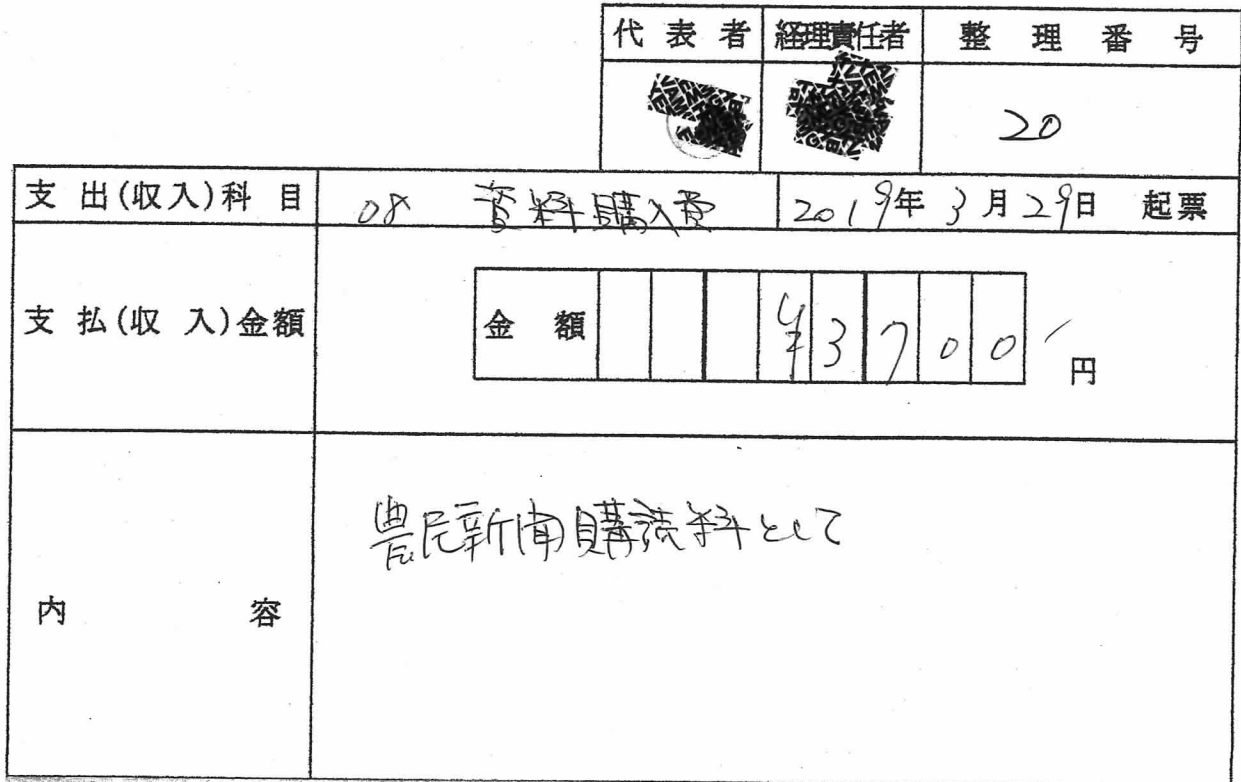 代表者 経理責任者 整理番号
20
支出(収入)科目 08 資料購入費 2019年3月29日 起票
支払(収入)金額 金額 ¥3700 円
農民新聞購読料として
内容